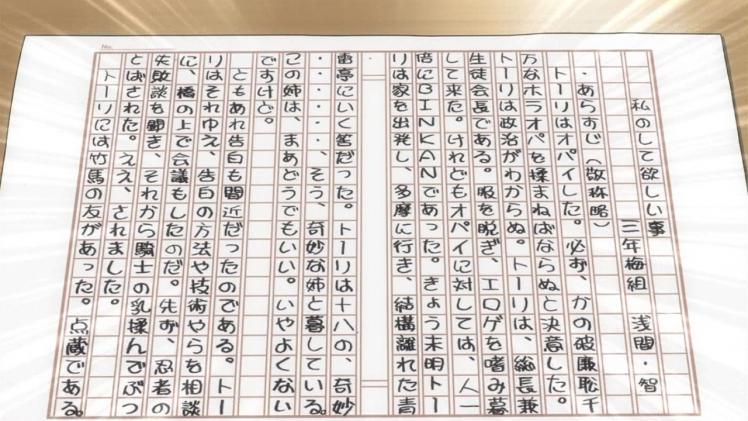 No.
私のして欲しい事
三年梅組　浅間・智
・あらすじ（敬称略）
トーリはオパイした。必ず、かの破廉恥千
万なホラオパを揉まねばならぬと決意した。
トーリは政治がわからぬ。トーリは、総長兼
生徒会長である。服を脱ぎ、エロゲを嗜み暮
して来た。けれどもオパイに対しては、人一
倍にＢＩＮＫＡＮであった。きょう未明トー
リは家を出発し、多摩に行き、結構離れた青
雷亭にいく筈だった。トーリは十八の、奇妙
・・・・・・、そう、奇妙な姉と暮している。
この姉は、まあどうでもいい。いやよくない
ですけど。
ともあれ告白も間近だったのである。トー
リはそれゆえ、告白の方法や技術やらを相談
に、橋の上で会議もしたのだ。先ず、忍者の
失敗談を聞き、それから騎士の乳揉んでぶっ
とばされた。ええ、されました。
トーリには竹馬の友があった。点蔵である。